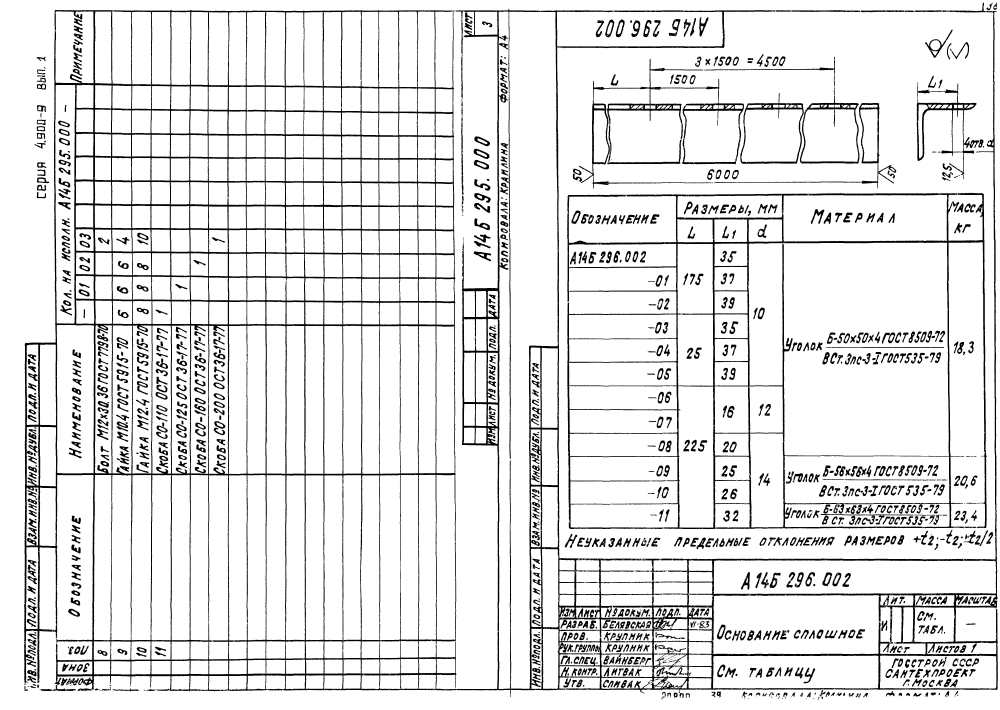 серия 4.900-9 Вып. 1
Формат
Зона
Поз.
Обозначение
Наименование
Кол. на исполн. А14Б 295.000 –
– 01 02 03
Примечание
8 Болт М12×30.36 ГОСТ 7798-70 2
9 Гайка М10.4 ГОСТ 5915-70 6 6 6 4
10 Гайка М12.4 ГОСТ 5915-70 8 8 8 10
11 Скоба СО-110 ОСТ 36-17-77 1
Скоба СО-125 ОСТ 36-17-77 1
Скоба СО-160 ОСТ 36-17-77 1
Скоба СО-200 ОСТ 36-17-77 1
Инв. № подл. Подп. и дата Взам. инв. № Инв. № дубл. Подп. и дата
Изм Лист № докум. Подп. Дата
А14Б 295.000
Лист
3
Копировала: Крилина Формат: А4
А14Б 296.002
3×1500 = 4500
L 1500
L1
4 отв. d
6000
50 50
12,5
Обозначение Размеры, мм Материал Масса, кг
L L1 d
А14Б 296.002 175 35 10 Уголок Б-50×50×4 ГОСТ 8509-72 18,3
В Ст. 3пс-3-I ГОСТ 535-79
-01 37
-02 39
-03 25 35
-04 37
-05 39
-06 225 16 12
-07
-08 20 14
-09 25 Уголок Б-56×56×4 ГОСТ 8509-72 20,6
В Ст. 3пс-3-I ГОСТ 535-79
-10 26
-11 32 Уголок Б-63×63×4 ГОСТ 8509-72 23,4
В Ст. 3пс-3-I ГОСТ 535-79
Неуказанные предельные отклонения размеров +t2; -t2; ±t2/2
Инв. № подл. Подп. и дата Взам. инв. № Инв. № дубл. Подп. и дата
А14Б 296.002
Изм Лист № докум. Подп. Дата
Разраб. Белявская 11-83
Пров. Крупник
Рук. группы Крупник
Гл. спец. Вайнберг
Н. контр. Литвак
Утв. Спивак
Основание сплошное
См. таблицу
Лит. Масса Масштаб
И См. табл. –
Лист Листов 1
Госстрой СССР
Сантехпроект
г. Москва
39 Копировала: Крилина Формат: А4